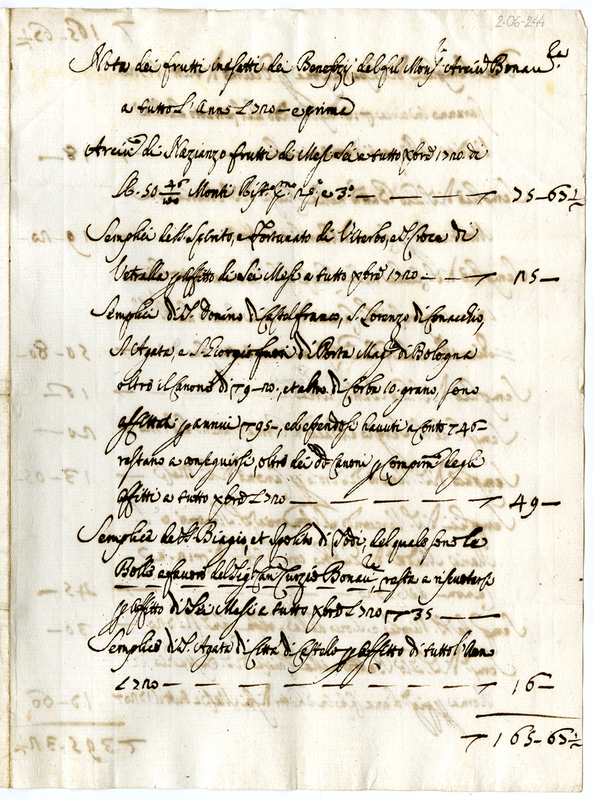 2-06-244
Nota dei frutti inesatti dei Benefizj del fu Mons.r Arciv.o Bonav.ra
a tutto l'Anno 1720 – e prima
Arciv.o di Nazianzo frutti di Mesi sei a tutto xbre 1720. di
46/100 Monti 2.o, e 3.o — — — 75–65½
Semplici de SS. e Fortunato di Viterbo, e S. Croce di
Vetralla p affitto di sei Mesi a tutto xbre 1720 — — 15 —
Semplici di S. Donino di Castelfranco, S. Lorenzo di
S. Agata e S. Giorgio fuori di Porta Mag.re di Bologna
oltre il Canone di 79–20, et altro di Corbe 10. grano, sono
affittati p annui 795–, ed essendosi havuti a conto 746–
restano a conseguirsi, oltre dei dd. Canoni p degli
affitti a tutto xbre 1720 — — — — 49 —
Semplice de SS. Biagio, et Ipolito di Todi, del quale sono le
Bolle a favore del Sig. Can. Curzio Bonav.ra, resta a riscuotersi
p affitto di Sei Mesi a tutto xbre 1720 35 — —
Semplice di S. Agata di Città di Castello p affitto di tutto l'Anno
1720 — — — — — — 16 —
165–65½